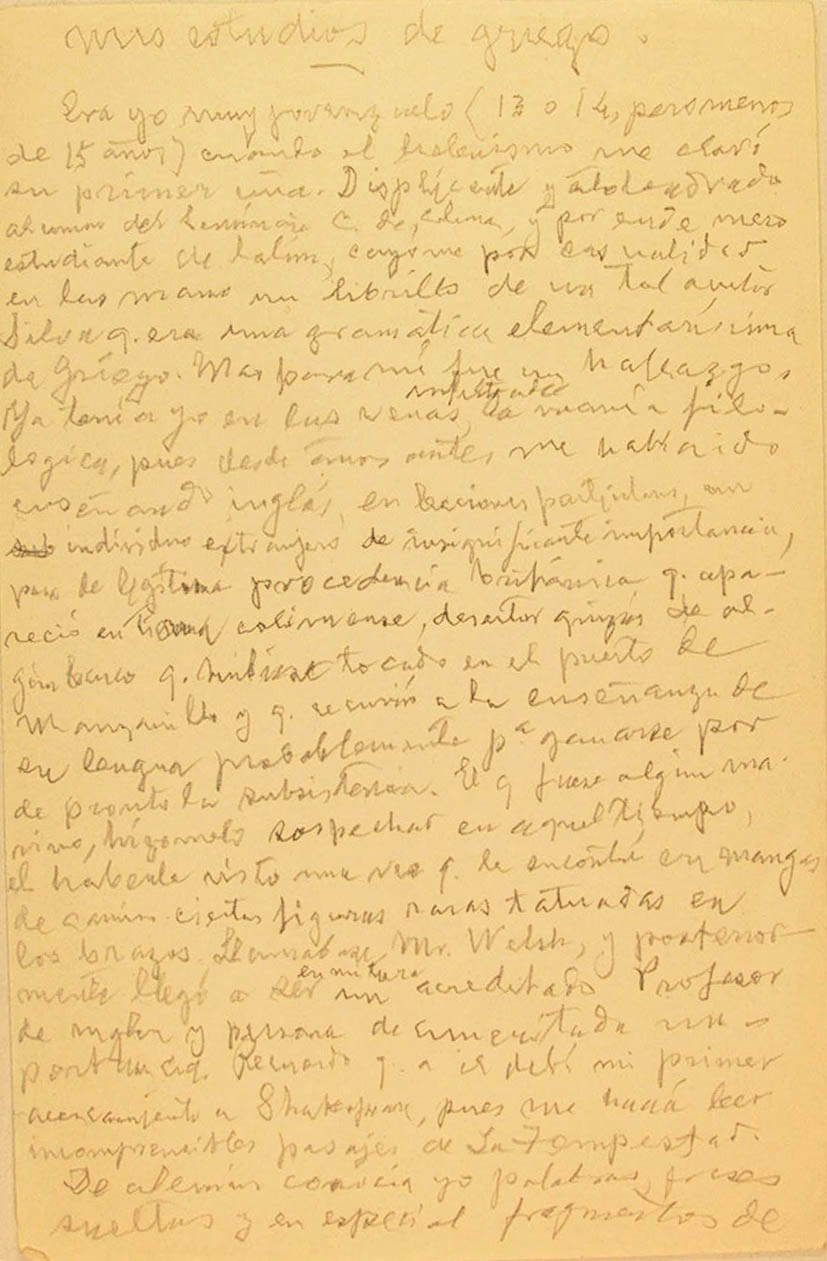 mis estudios de griego.
Era yo muy jovenzuelo (13 o 14, pero menos
de 15 años) cuando el helenismo me clavó
su primer uña. Displicente y atolondrado
alumno del Seminario C. de Colima, y por ende mero
estudiante de latín, cayóme por casualidad
en las manos un librillo de un tal autor
Silva q. era una gramática elementarísima
de Griego. Mas para mí fue un hallazgo.
Ya tenía yo en las venas, la manía filo-
logica, pues desde años antes me había ido
enseñando inglés, en lecciones particulares, un
individuo extranjero de insignificante importancia,
pero de legítima procedencia británica q. apa-
reció en tierra colimense, desertor quizás de al-
gún barco q. hubiese tocado en el puerto de
Manzanillo y q. recurrió a la enseñanza de
su lengua probablemente pª ganarse por
de pronto la subsistencia. El q fuese algún ma-
rino, hízomelo sospechar en aquel tiempo,
el haberle visto una vez q. le encontré en mangas
de camisa ciertas figuras raras tatuadas en
los brazos. Llamábase Mr. Welsh, y posterior-
mente llegó a ser un acreditado Profesor
de inglés y persona de im-
portancia. Recuerdo q. a él debí mi primer
acercamiento a Shakespeare, pues me hacía leer
incomprensibles pasajes de La Tempestad.
De alemán conocía yo palabras, frases
sueltas y en especial fragmentos de